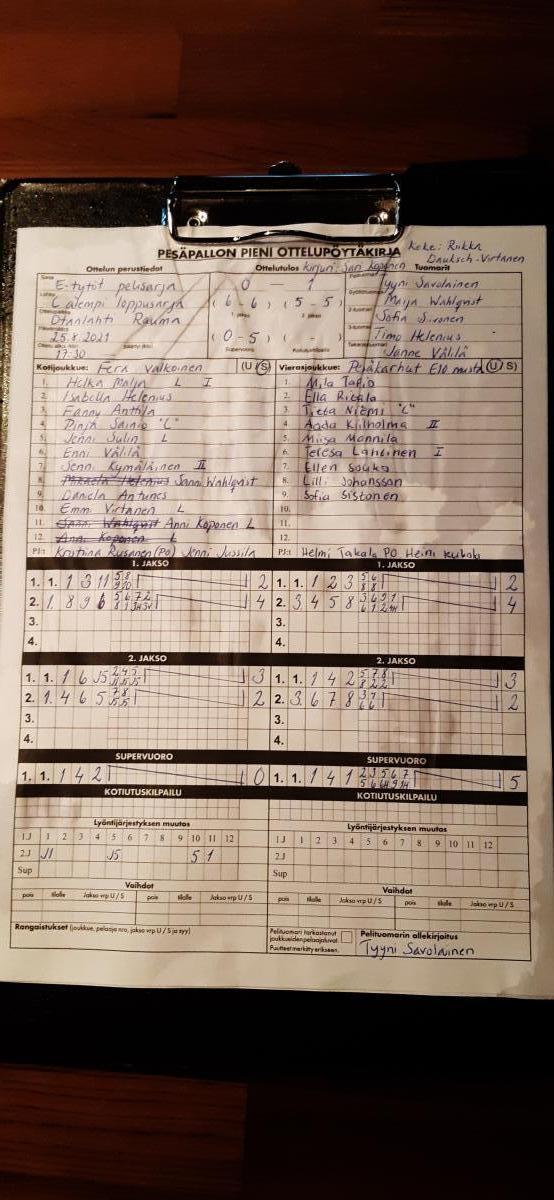 PESÄPALLON PIENI OTTELUPÖYTÄKIRJA
Keke: Riikka
Dauksch-Virtanen
Ottelun perustiedot
Ottelutulos
Tuomarit
Kirjuri: Sari Koponen
E-tytöt pelisarja
0 - 1
Tyyni Savolainen
C alempi loppusarja
(6 - 6) (5 - 5)
Maija Wahlqvist
Otanlahti Rauma
Sofia Siivonen
25.8.2021
(0 - 5) ( - )
Timo Helenius
17:30
Janne Välilä
Kotijoukkue: Fera Valkoinen (U/S)
Vierasjoukkue: Pesäkarhut E10 musta (U/S)
1. Helka Malja L I
1. Mila Tapio
2. Isabella Helenius
2. Ella Ritala
3. Fanny Anttila
3. Tietä Niemi "C"
4. Pinja Sainio "C"
4. Aada Kilholma II
5. Jenni Julin L
5. Miisa Mannila
6. Enni Välilä
6. Teresa Lahtinen I
7. Jenni Kymäläinen II
7. Ellen Souka
8. Mikaela Helenius Sanni Wahlqvist
8. Lilli Johansson
9. Daniela Antunes
9. Sofia Sistonen
10. Emmi Virtanen L
10.
11. Sanni Wahlqvist Anni Koponen L
11.
12. Anni Koponen L
12.
PJ:t Kristiina Rusanen (PO) Jenni Jussila
PJ:t Helmi Takala PO Heini
1. JAKSO
1. JAKSO
1. 1. 1 3 11 5 8 9 10 2
1. 1. 1 2 3 5 6 8 8 2
2. 1. 8 9 6 5 6 7 2 4
2. 3. 4 5 8 4
3.
3.
4.
4.
2. JAKSO
2. JAKSO
1. 1. 1 6 J5 2 4 5 3
1. 1. 1 4 2 5 7 8 8 2 2 3
2. 1. 4 6 5 7 8 J5 J5 2
2. 3. 6 7 8 3 7 6 6 2
3.
3.
4.
4.
SUPERVUORO
SUPERVUORO
1. 1. 1 4 2 0
1. 1. 1 4 1 2 3 5 6 7 5
KOTIUTUSKILPAILU
KOTIUTUSKILPAILU
Lyöntijärjestyksen muutos
Lyöntijärjestyksen muutos
1.J 1 2 3 4 5 6 7 8 9 10 11 12
1.J 1 2 3 4 5 6 7 8 9 10 11 12
2.J J1 J5 5 1
2.J
Sup
Sup
Vaihdot
Vaihdot
pois tilalle Jakso vrp U / S pois tilalle Jakso vrp U / S
pois tilalle Jakso vrp U / S pois tilalle Jakso vrp U / S
Rangaistukset (joukkue, pelaaja nro, jakso vrp U / S ja syy)
Pelituomari tarkastanut
joukkueiden pelaajaluvat.
Puutteet merkitty erikseen.
Pelituomarin allekirjoitus
Tyyni Savolainen